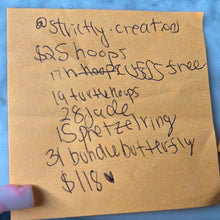 @strictly.creation
$25 hoops
free
19 turtle hoops
28 jade
15 pretzel ring
31 bundle butterfly
$118